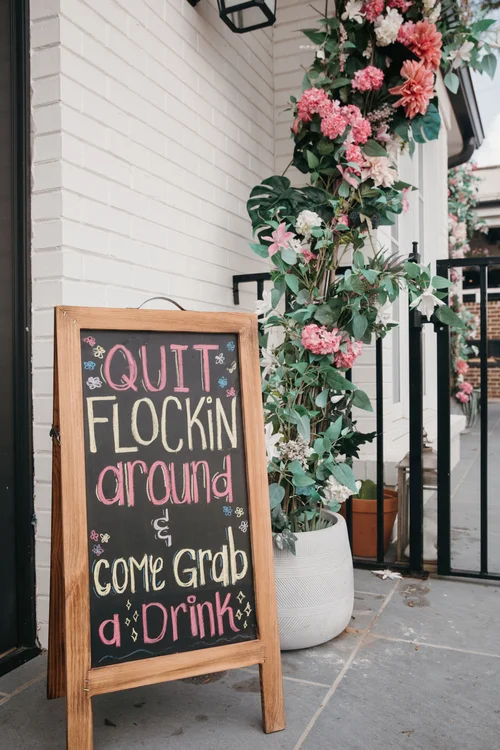 QUIT
FLOCKIN
around
&
come Grab
a Drink